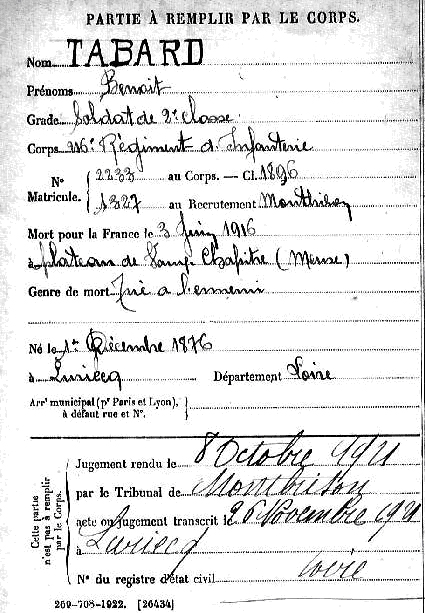 PARTIE À REMPLIR PAR LE CORPS.
Nom TABARD
Prénoms Benoit
Grade Soldat de 2e classe
Corps 216e Régiment d'Infanterie
N° Matricule. { 2233 au Corps. — Cl. 1896
1327 au Recrutement Montbrison
Mort pour la France le 3 Juin 1916
à plateau de Chapitre (Meuse)
Genre de mort Tué a l'ennemi
Né le 1er Décembre 1876
à Luriecq Département Loire
Arrt municipal (pr Paris et Lyon), à défaut rue et N°.
Cette partie n'est pas à remplir par le Corps.
Jugement rendu le 8 Octobre 1921
par le Tribunal de Montbrison
acte ou jugement transcrit le 26 Novembre 1921
à Luriecq
N° du registre d'état civil Loire
269-708-1922. [26434]